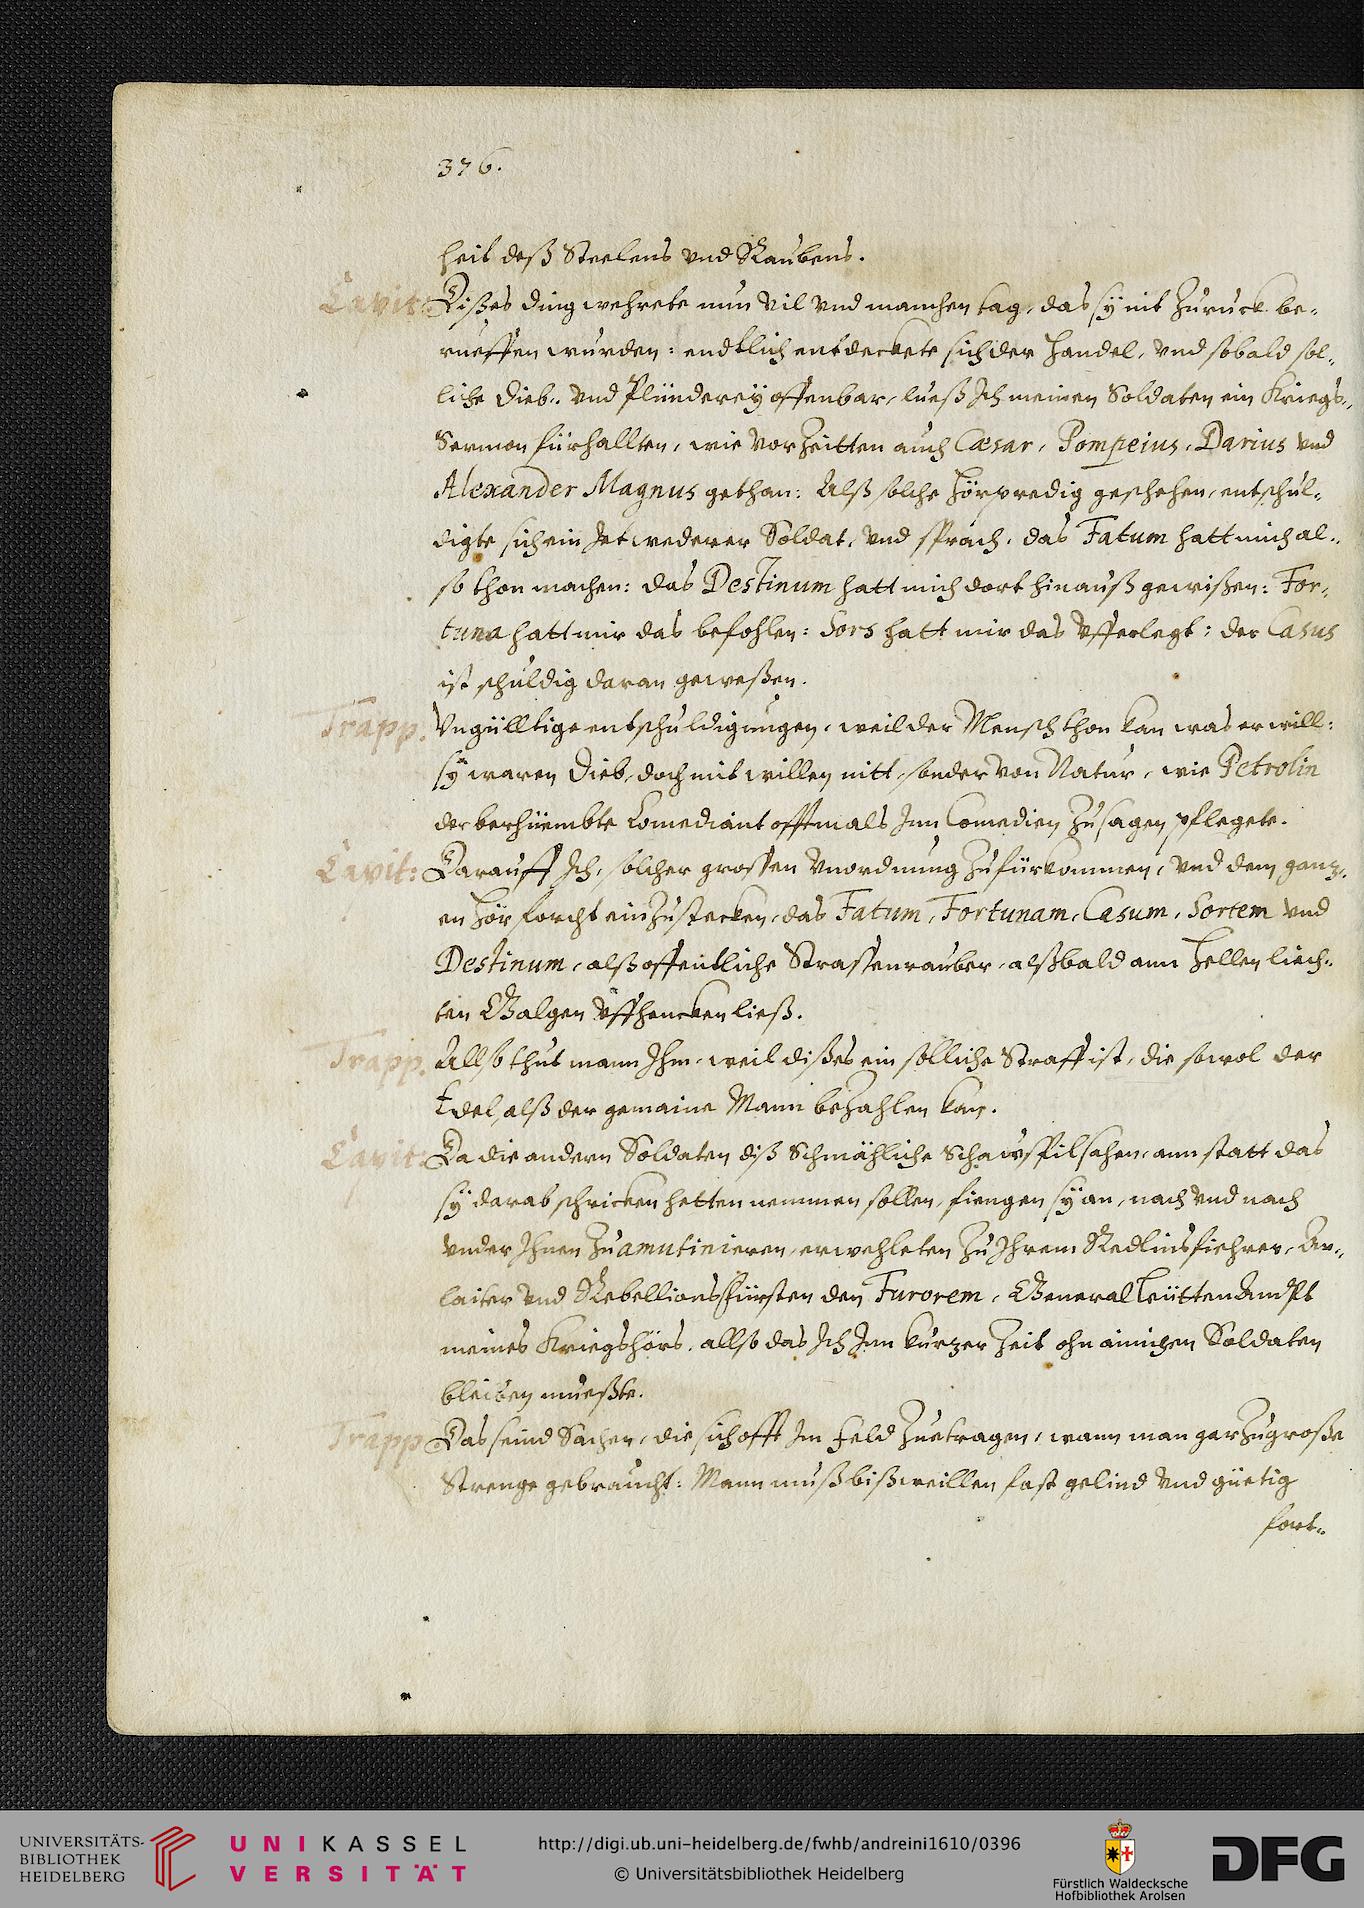 376.
heit deß Steelens vnd Raubens.
Capit: Dißes ding wehrete nun vil vnd manchen tag, das sÿ nit Zuruck be-
rueffen wurden: endtlich entdeckete sich der Handel, vnd sobald sol-
liche Dieb- vnd Plündereÿ offenbar, lueß Ich meinen Soldaten ein Kriegs-
Sermon fürhallten, wie vor Zeitten auch Cæsar, Pompeius, Darius vnd
Alexander Magnus gethan: Alß solche Hörpredig geschehen, entschul-
digte sich ein Jetwederer Soldat, vnd sprach, das Fatum hatt mich al-
so thon machen: das Destinum hatt mich dort hinauß gewißen: For-
tuna hatt mir das befohlen: Sors hatt mir das vfferlegt: der Casus
ist schuldig daran geweßen.
Trapp. Vngülltige entschuldigungen, weil der Mensch thon kan was er will:
sÿ waren Dieb, doch mit willen nitt, sonder von Natur, wie Petrolin
der berhüembte Comediant offtmals Jnn Comedien Zusagen pflegete.
Capit: Darauff Ich, solcher grossen vnordnung Zufürkommen, vnd dem gantz-
en Hör forcht einZustecken, das Fatum, Fortunam, Casum, Sortem vnd
Destinum, alß offentliche Strassenrauber, alßbald ann Hellen liech-
ten Galgen vffhencken ließ.
Trapp. Allso thut mann Ihm, weil dißes ein solliche Straff ist, die sowol der
Edel, alß der gemaine Mann beZahlen kan.
Capit: Da die andern Soldaten diß Schmähliche Schawspil sahen, ann statt das
sÿ darab schricken hetten nemmen sollen, fiengen sÿ an, nach vnd nach
vnder Ihnen Zu amutinieren, erwehleten Zu Ihrem Redlinsfiehrer, An-
laiter vnd Rebellionsfürsten den Furorem, General Leüttenandt
meines Kriegshörs, allso das Ich Jnn kurtzer Zeit ohn ainichen Soldaten
bleiben mueßte.
Trapp. Das seind Sachen, die sich offt Im Feld Zuetragen, wann man gar Zu große
Strenge gebraucht: Mann muß bißweillen fast gelind vnd güetig
fort-
UNIVERSITÄTS-
BIBLIOTHEK
HEIDELBERG
UNIKASSEL
VERSITÄT
http://digi.ub.uni-heidelberg.de/fwhb/andreini1610/0396
© Universitätsbibliothek Heidelberg
Fürstlich Waldecksche
Hofbibliothek Arolsen
DFG